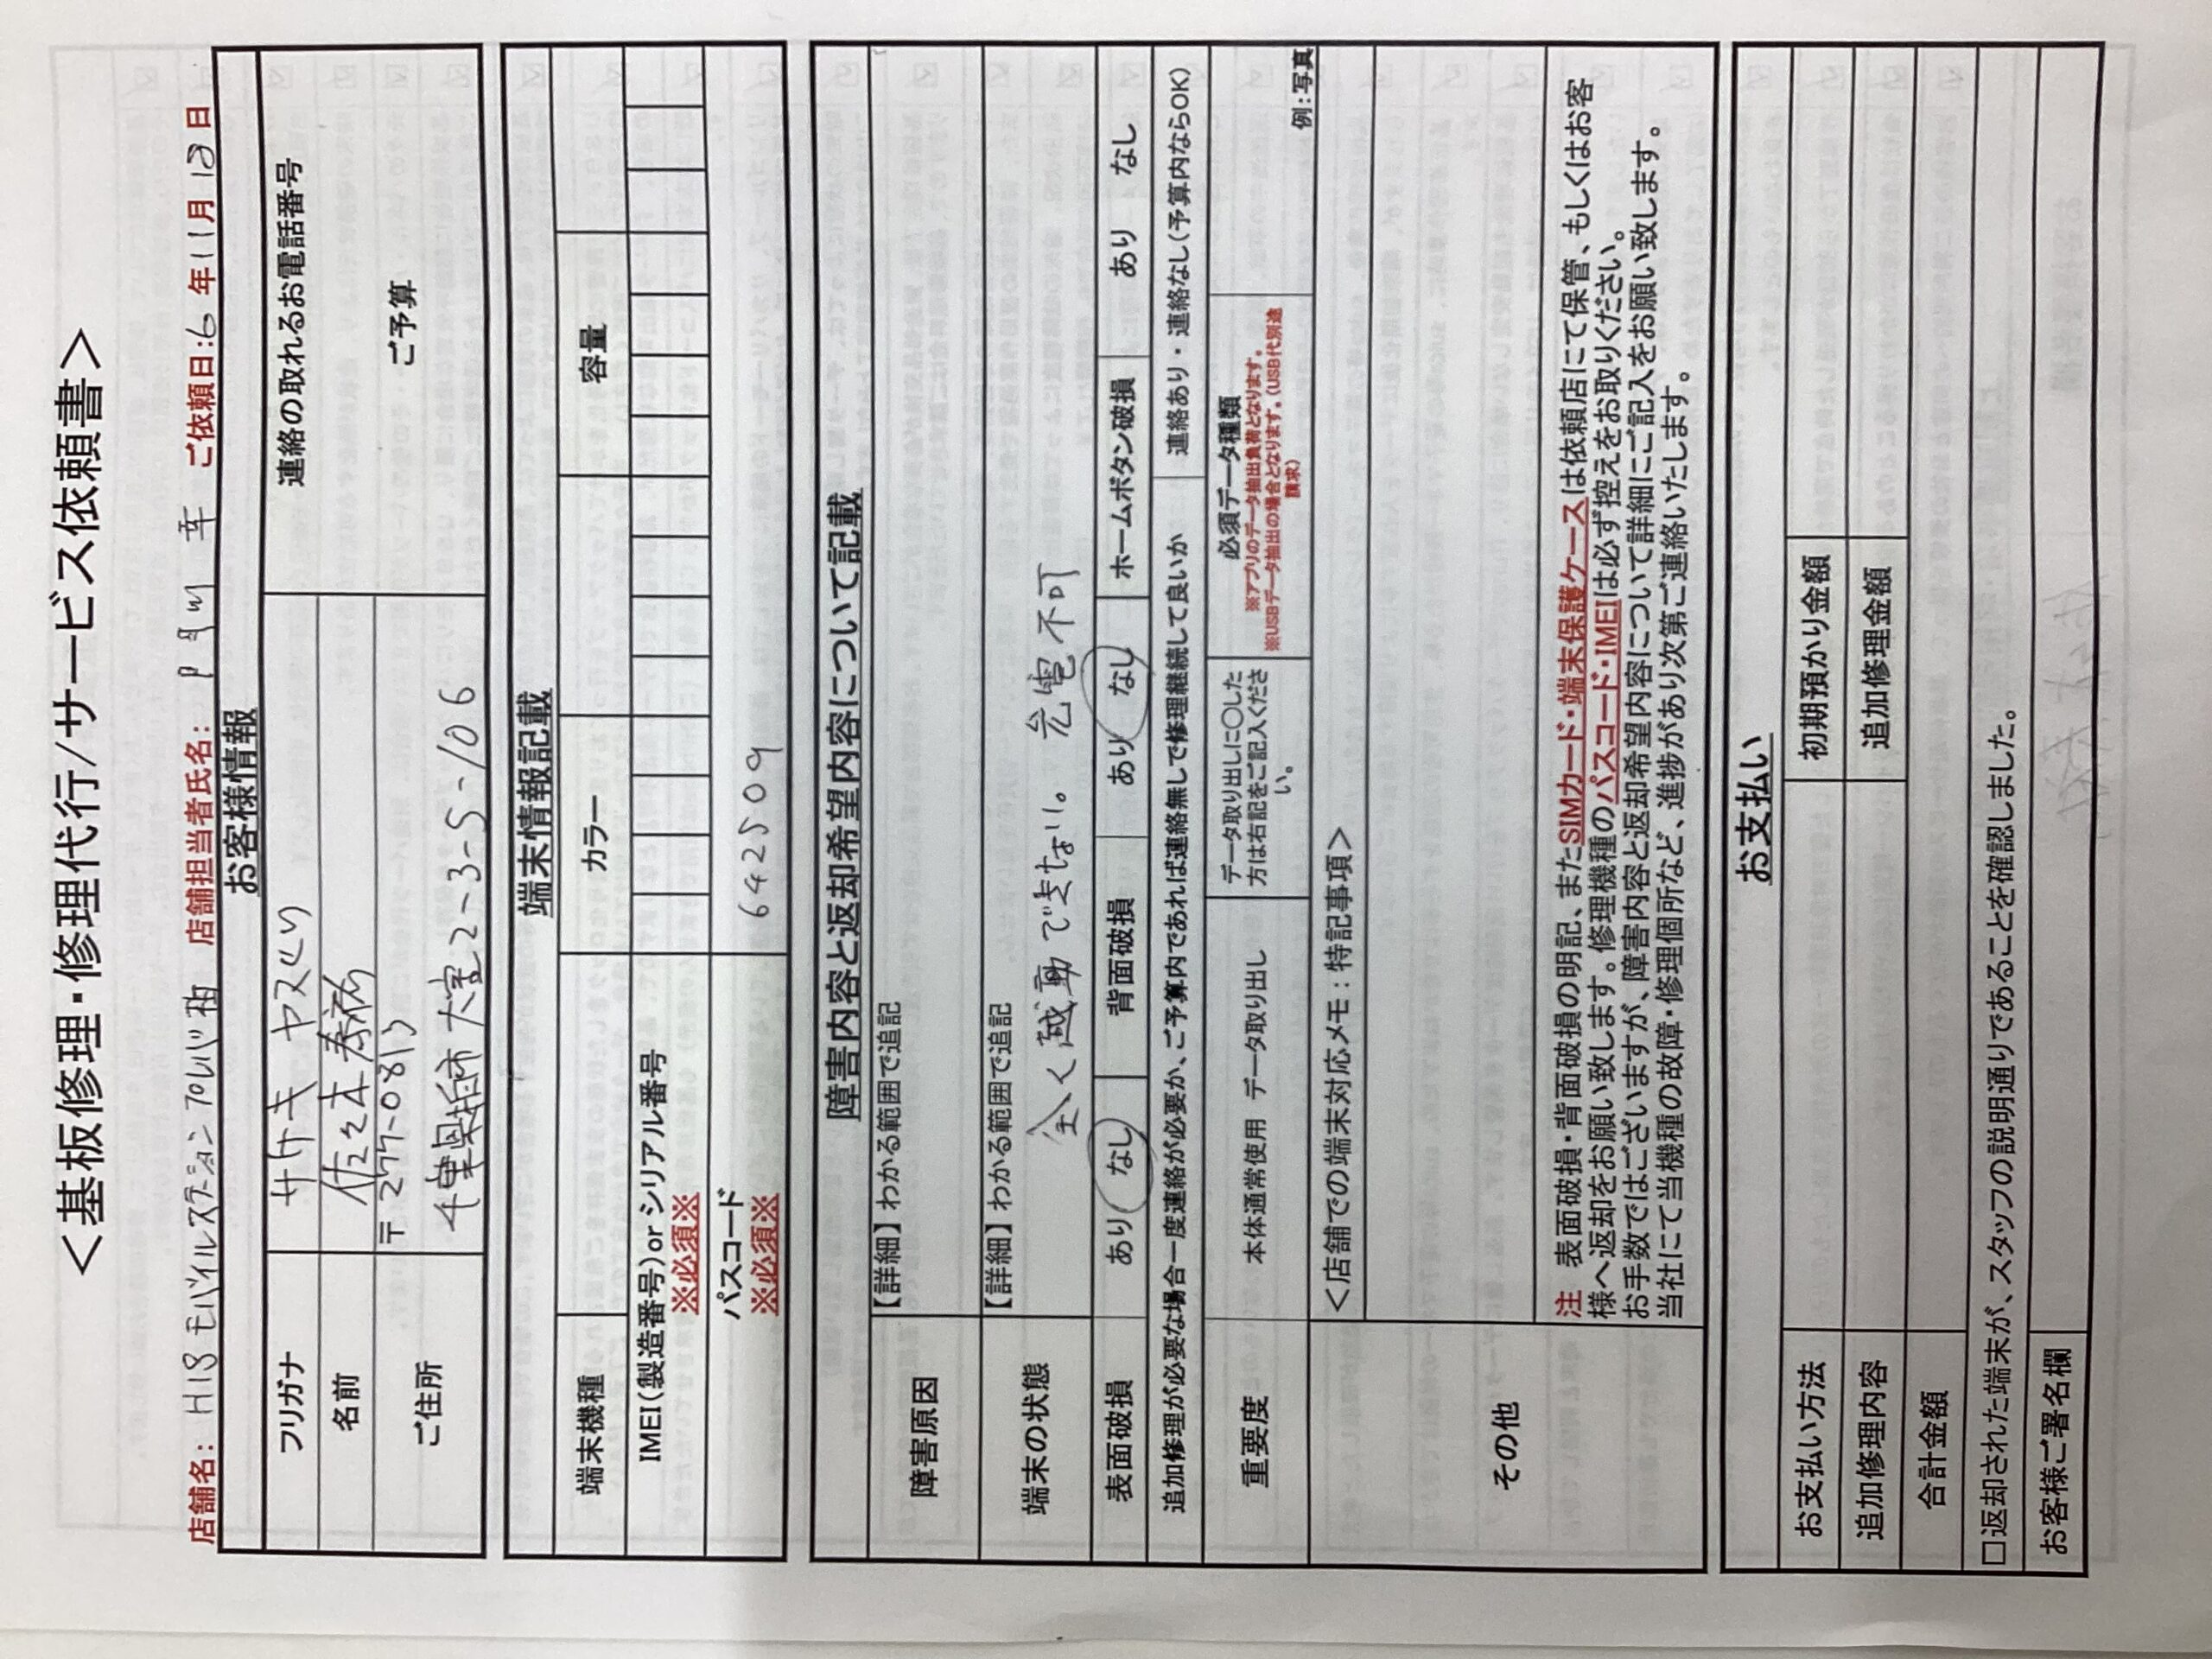 ＜基板修理・修理代行/サービス依頼書＞
店舗名: H18 モバイルステーション アロハバ 柏 店舗担当者氏名: ご依頼日:6年11月12日
お客様情報
フリガナ ササキ ヤスノリ 連絡の取れるお電話番号
名前 佐々木
ご住所 〒277-08 ご予算
千葉県柏市 大室2-3-5-106
端末情報記載
端末機種 カラー 容量
IMEI(製造番号)or シリアル番号
※必須※
パスコード 642509
※必須※
障害内容と返却希望内容について記載
障害原因 【詳細】わかる範囲で追記
端末の状態 【詳細】わかる範囲で追記
全く起動できない。充電不可
表面破損 あり なし 背面破損 あり なし ホームボタン破損 あり なし
追加修理が必要な場合一度連絡が必要か、ご予算内であれば連絡無しで修理継続して良いか 連絡あり・連絡なし(予算内ならOK)
重要度 本体通常使用 データ取り出し データ取り出しに〇した方は右記をご記入ください。
必須データ種類
※アプリのデータ抽出負荷となります。
※USBデータ抽出の場合となります。(USB代別途請求)
例:写真
その他 ＜店舗での端末対応メモ：特記事項＞
注 表面破損・背面破損の明記、またSIMカード・端末保護ケースは依頼店にて保管、もしくはお客
様へ返却をお願い致します。修理機種のパスコード・IMEIは必ず控えをお取りください。
お手数ではございますが、障害内容と返却希望内容について詳細にご記入をお願い致します。
当社にて当機種の故障・修理個所など、進捗があり次第ご連絡いたします。
お支払い
お支払い方法 初期預かり金額
追加修理内容 追加修理金額
合計金額
□返却された端末が、スタッフの説明通りであることを確認しました。
お客様ご署名欄